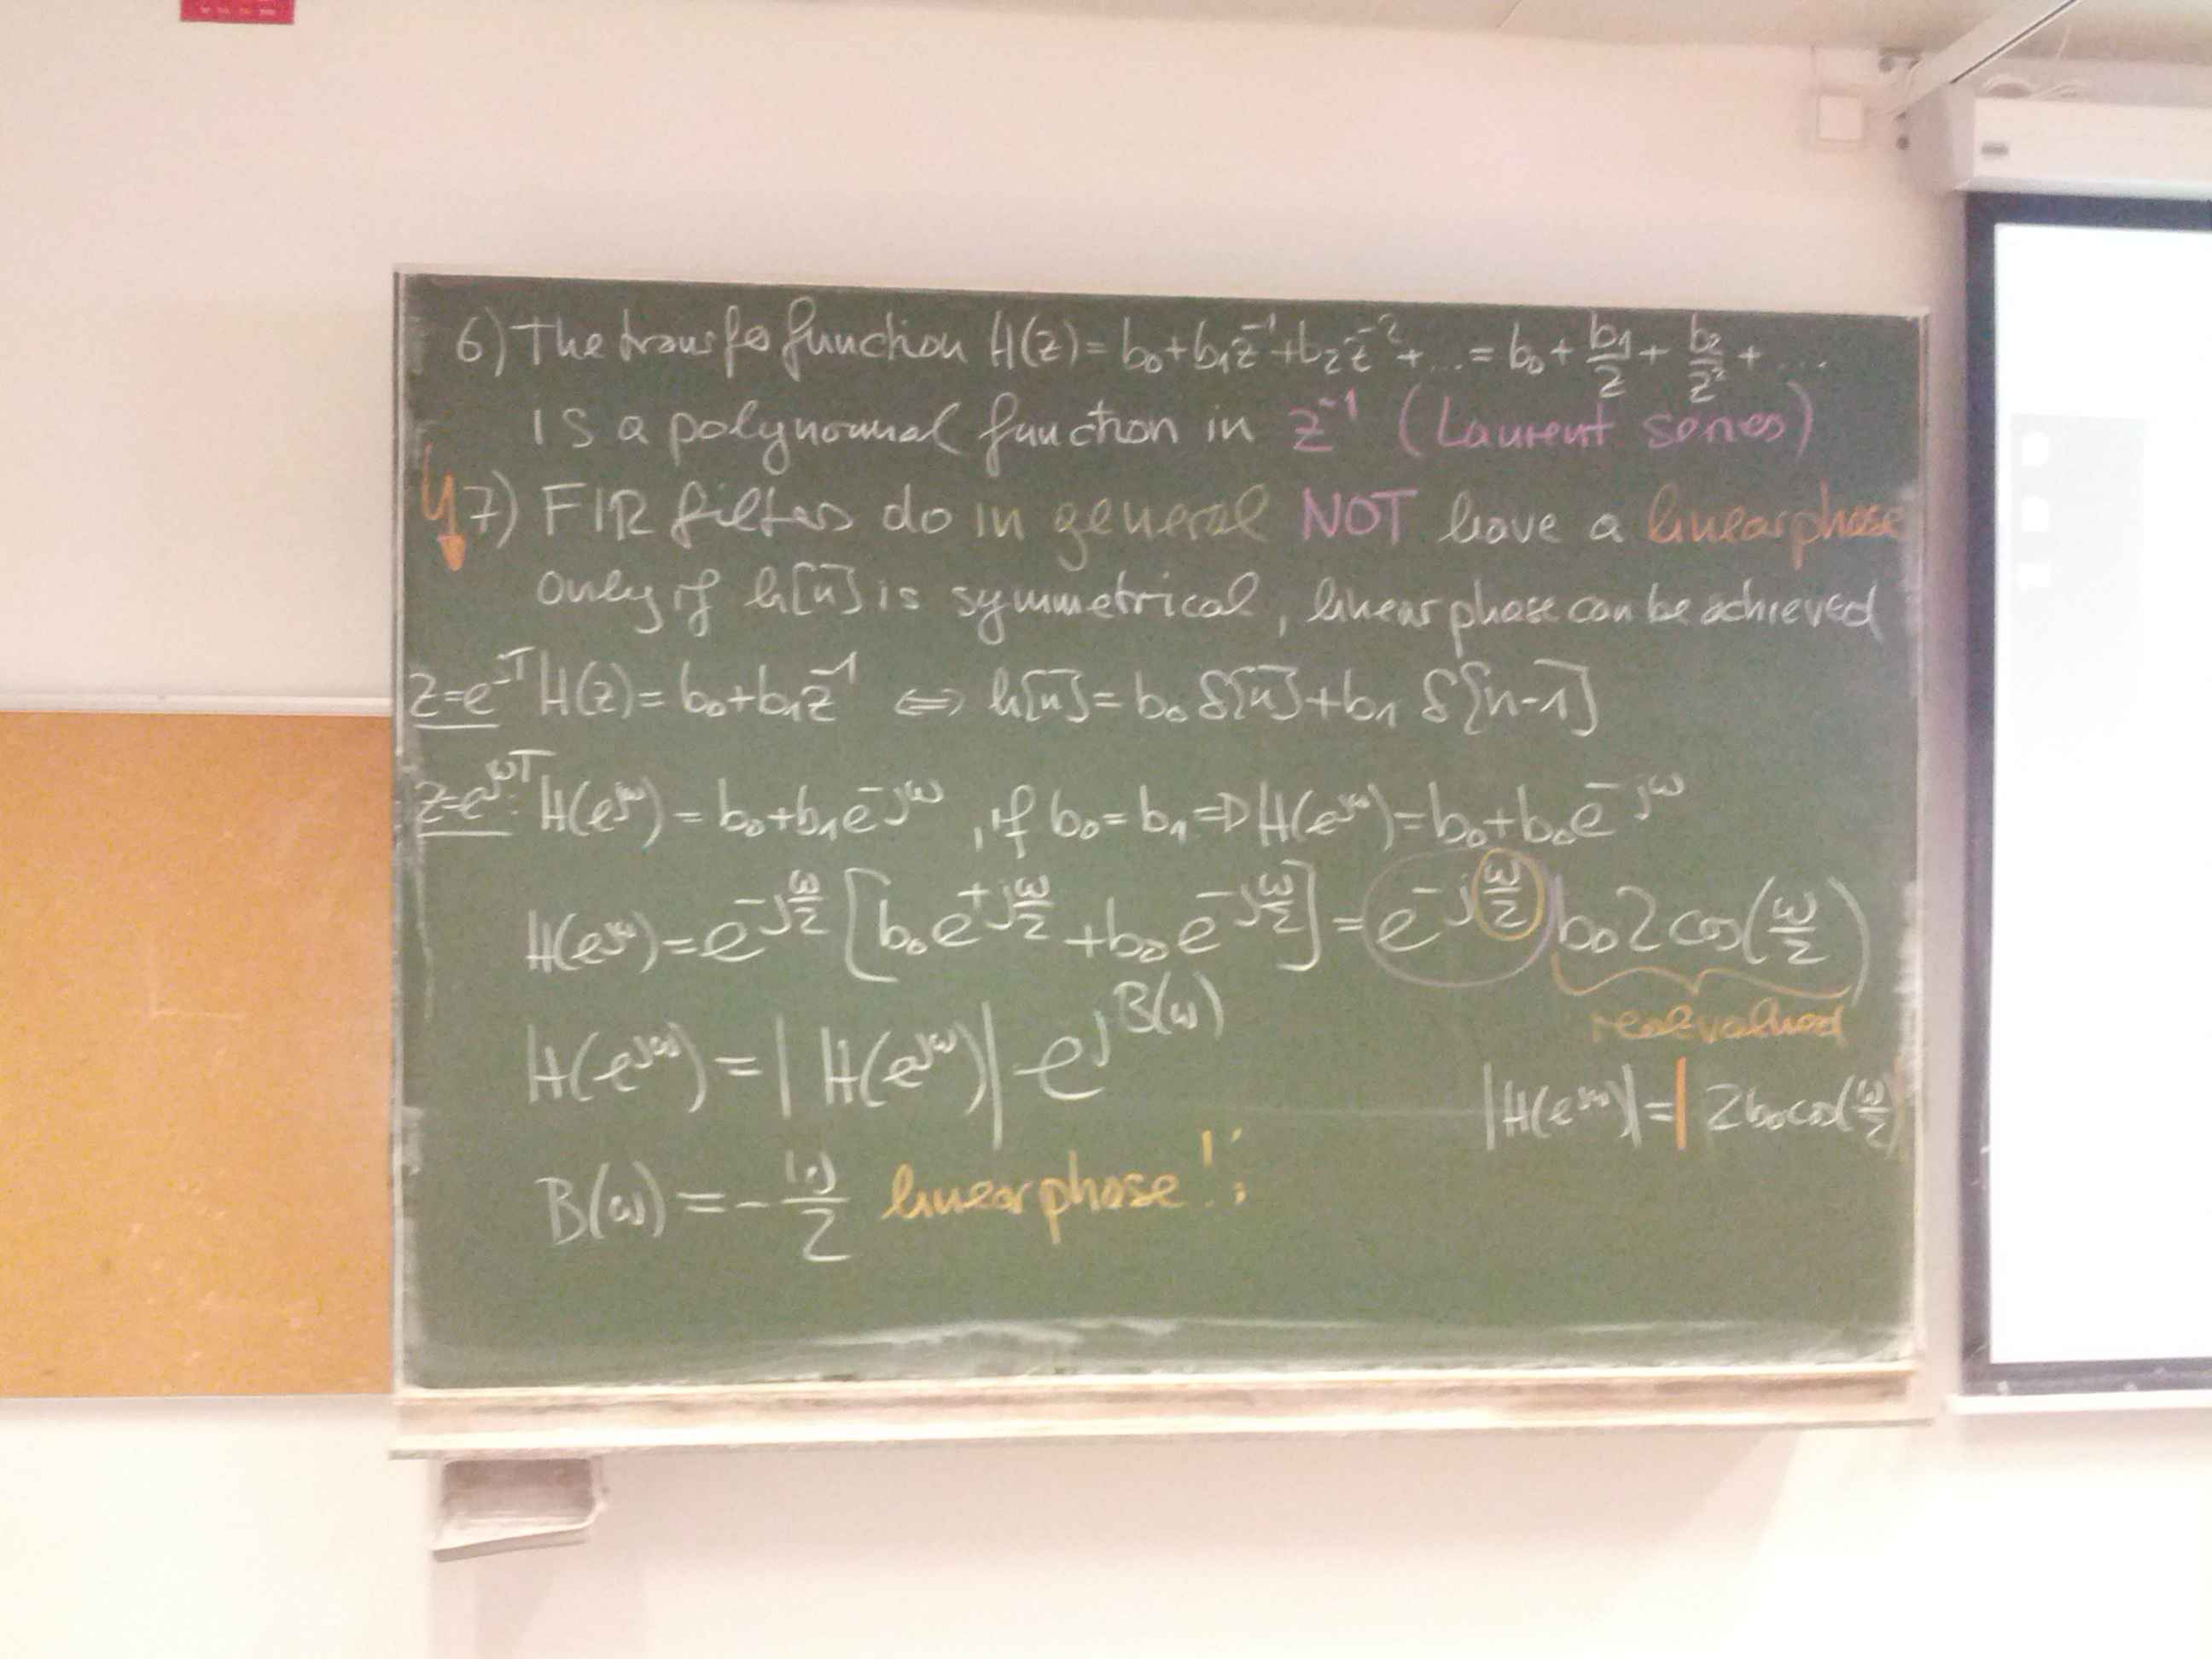 6) The transfe function H(z) = b₀ + b₁z⁻¹ + b₂z⁻² + ... = b₀ + b₁/z + b₂/z² + ...
is a polynomial function in z⁻¹ (Laurent series)
7) FIR filters do in general NOT have a linear phase
only if h[n] is symmetrical, linear phase can be achieved
z=e⁻ᵀ H(z) = b₀ + b₁z⁻¹ ⇔ h[n] = b₀ δ[n] + b₁ δ[n-1]
z=e^jωT: H(e^jω) = b₀ + b₁e^-jω , if b₀ = b₁ ⇒ H(e^jω) = b₀ + b₀e^-jω
H(e^jω) = e^-jω/2 [b₀e^+jω/2 + b₀e^-jω/2] = e^-jω/2 b₀2cos(ω/2)
real valued
H(e^jω) = |H(e^jω)| e^jB(ω)
|H(e^jω)| = |2b₀cos(ω/2)
B(ω) = -ω/2 linear phase!